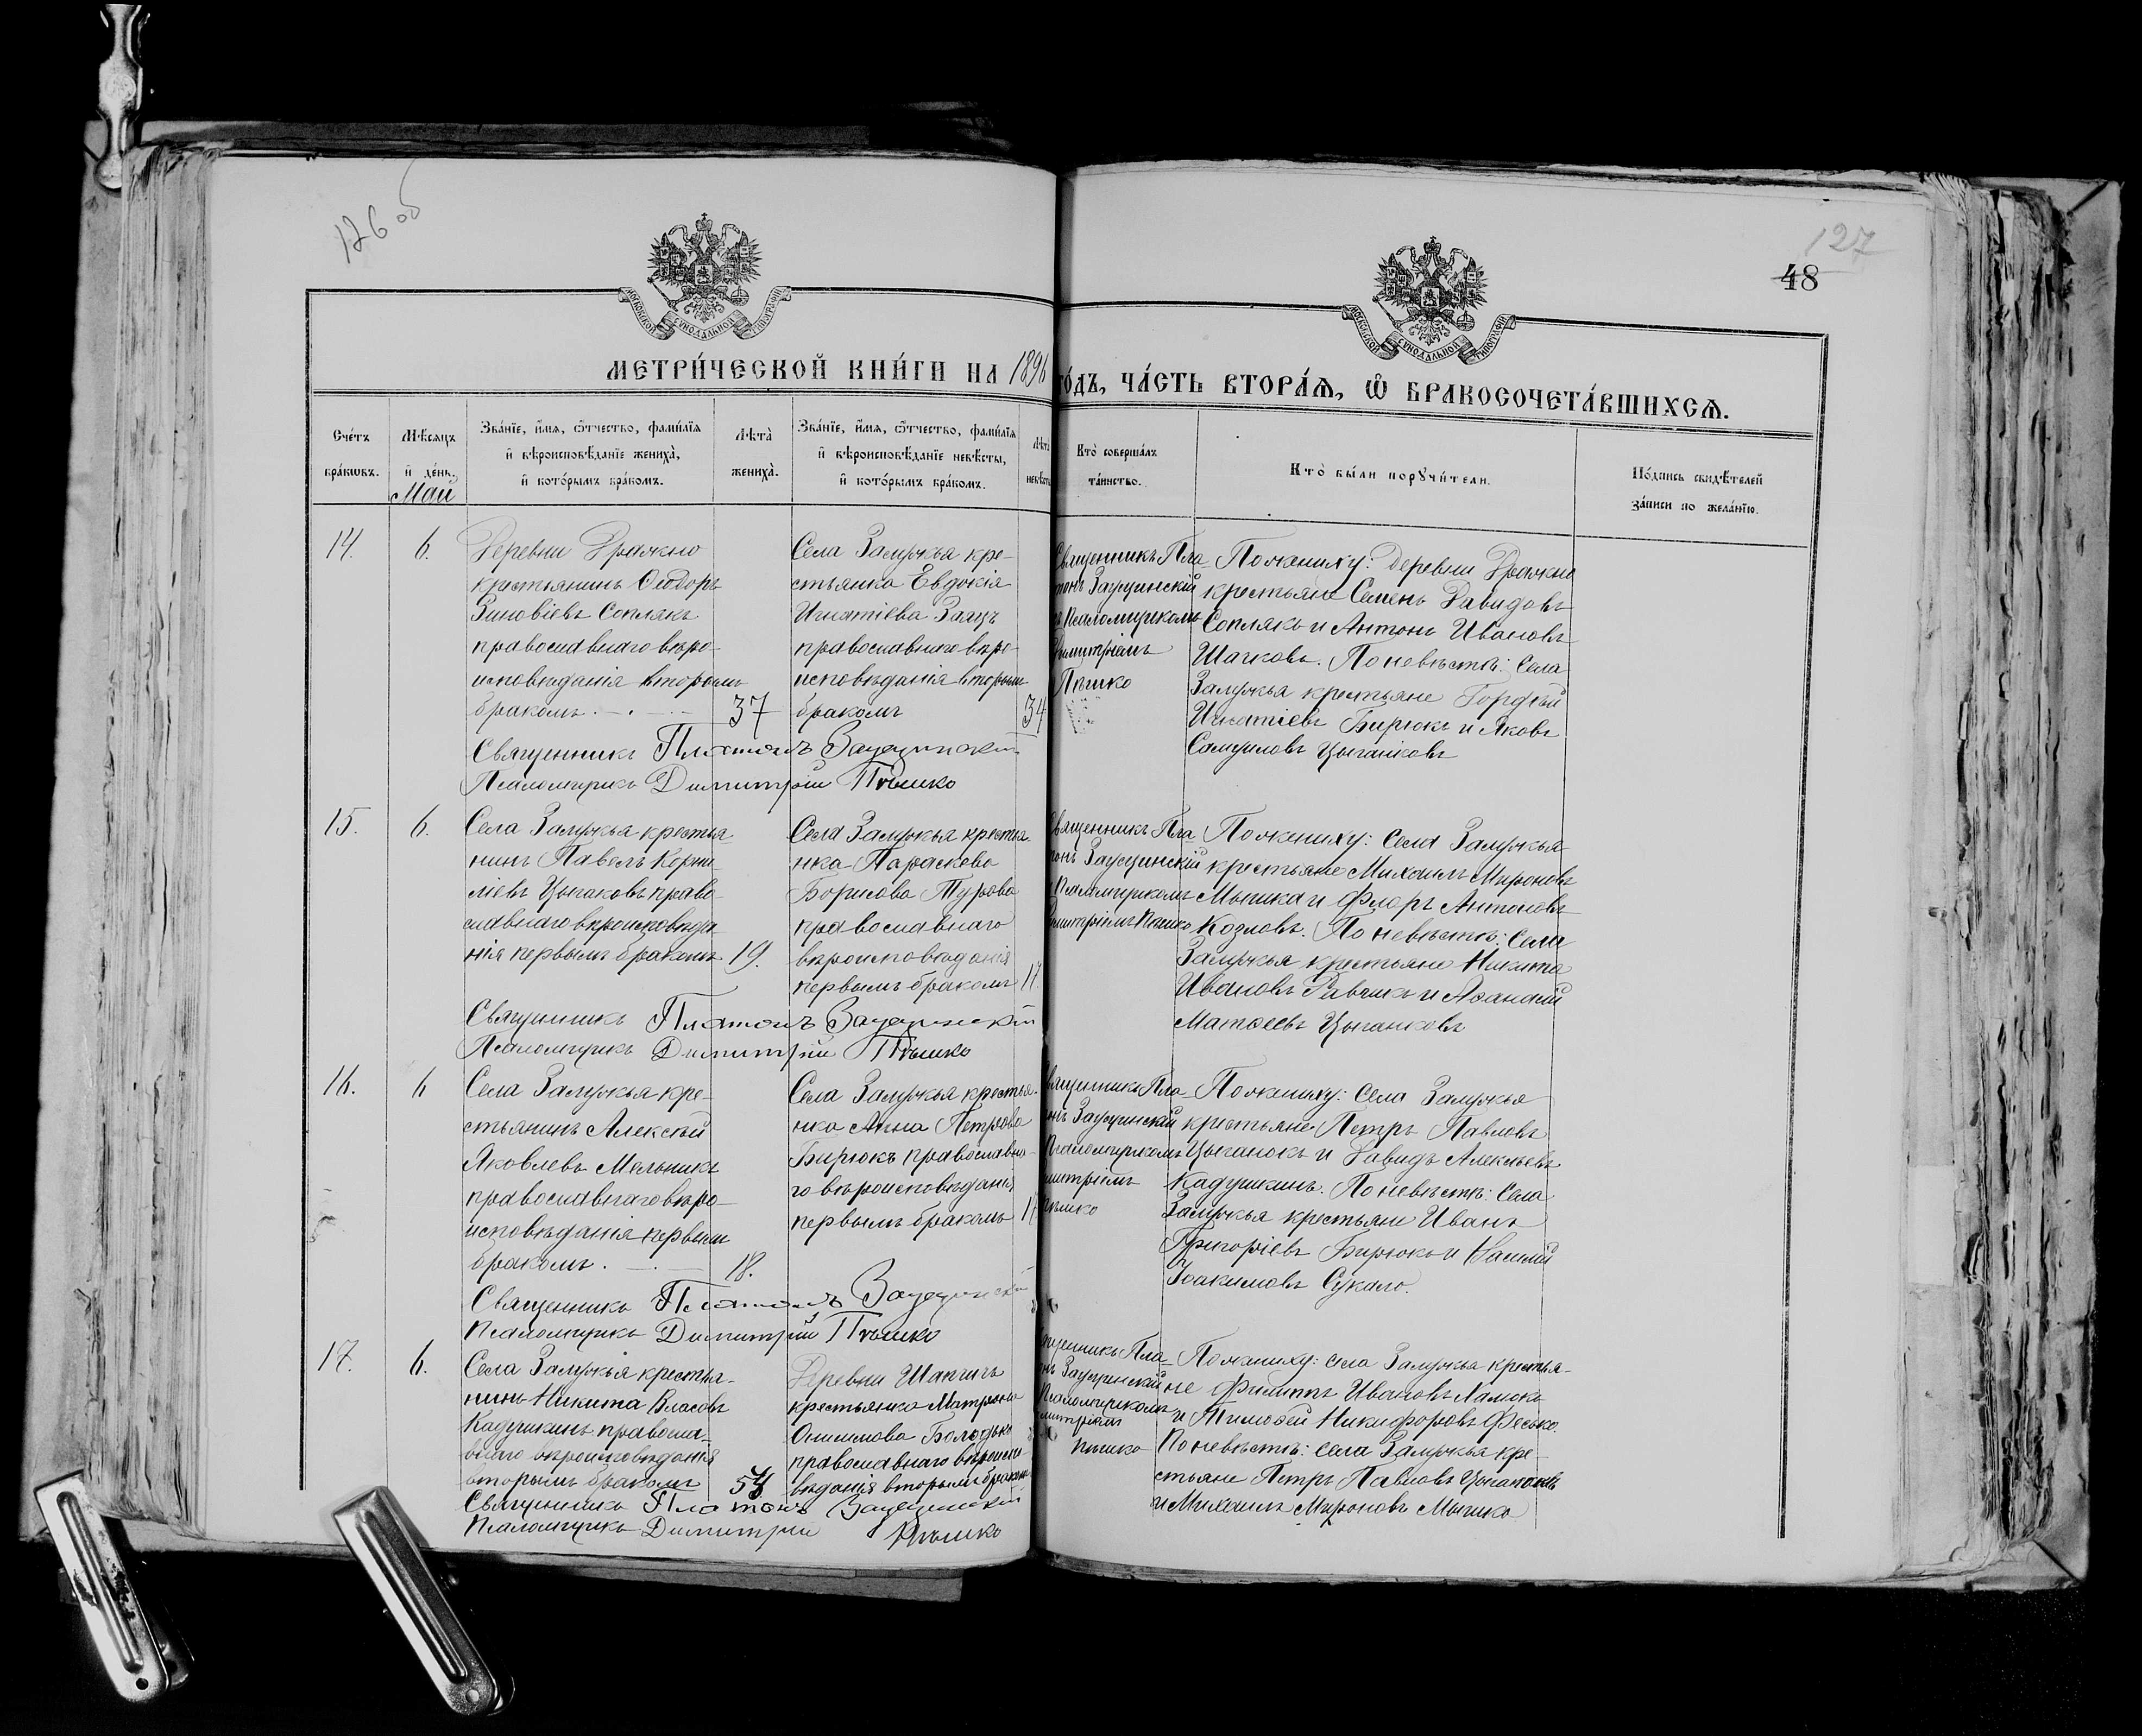 126 об
127
48
МОСКОВСКОЙ СѴНОДАЛЬНОЙ ТИПОГРАФІИ
МОСКОВСКОЙ СѴНОДАЛЬНОЙ ТИПОГРАФІИ
МЕТРИ́ЧЕСКОЙ КНИ́ГИ НА 1896 ГО́ДЪ, ЧА́СТЬ ВТОРА́Ѧ, Ѽ БРАКОСОЧЕТА́ВШИХСѦ.
Сче́тъ
бра́кѡвъ.
Мѣ́сѧцъ
и҆ де́нь.
Май
Зва́нїе, и҆́мѧ, ѻ҆́тчество, фами́лїѧ
и҆ вѣроисповѣ́данїе жениха̀,
и҆ кото́рымъ бра́комъ.
Лѣта̀
жениха̀.
Зва́нїе, и҆́мѧ, ѻ҆́тчество, фами́лїѧ
и҆ вѣроисповѣ́данїе невѣ́сты,
и҆ кото́рымъ бра́комъ.
Лѣта̀
невѣ́сты
Кто̀ соверша́лъ
та́инство.
Кто̀ бы́ли порꙋчи́тели.
По́дпись свидѣ́телей
за́писи по жела́нїю.
14.
6.
Деревни Дражно
крестьянинъ Ѳеодоръ
Зиновіевъ Соплякъ
православнаго вѣро-
исповѣданія вторымъ
бракомъ
37
Села Залужья кре-
стьянка Евдокія
Игнатіева Заяцъ
православнаго вѣро-
исповѣданія вторымъ
бракомъ
34
Священникъ Пла-
тонъ Заусцинскій
съ Псаломщикомъ
Димитріемъ
Пышко
По жениху: деревни Дражно
крестьяне Семенъ Давидовъ
Соплякъ и Антонъ Ивановъ
Шачковъ. По невѣстѣ: Села
Залужья крестьяне Гордѣй
Игнатіевъ Бирюкъ и Яковъ
Самуиловъ Цыганковъ
Священникъ Платонъ Заусцинскій
Псаломщикъ Димитрій Пышко
15.
6.
Села Залужья крестья-
нинъ Павелъ Корни-
ліевъ Цыгаковъ право-
славнаго вѣроисповѣда-
нія первымъ бракомъ
19.
Села Залужья крестья-
нка Параскева
Борисова Турова
православнаго
вѣроисповѣданія
первымъ бракомъ
17.
Священникъ Пла-
тонъ Заусцинскій
Псаломщикомъ
Димитріемъ Пышко
По жениху: Села Залужья
крестьяне Михаилъ Мироновъ
Мышка и Флоръ Антоновъ
Козловъ. По невѣстѣ: Села
Залужья крестьяне Никита
Ивановъ Равчикъ и Аѳанасій
Матѳеевъ Цыганковъ
Священникъ Платонъ Заусцинскій
Псаломщикъ Димитрій Пышко
16.
6
Села Залужья кре-
стьянинъ Алексѣй
Яковлевъ Мельникъ
православнаго вѣро-
исповѣданія первымъ
бракомъ.
18.
Села Залужья крестья-
нка Анна Петрова
Бирюкъ православна-
го вѣроисповѣданія
первымъ бракомъ
Священникъ Пла-
тонъ Заусцинскій
Псаломщикомъ
Димитріемъ
Пышко
По жениху: Села Залужья
крестьяне Петръ Павловъ
Цыганокъ и Давидъ Алексѣевъ
Кадушкинъ. По невѣстѣ: Села
Залужья крестьяне Иванъ
Григоріевъ Бирюкъ и Василій
Іоакимовъ Сукало.
Священникъ Платонъ Заусцинскій
Псаломщикъ Димитрій Пышко
17.
6.
Села Залужья крестья-
нинъ Никита Власовъ
Кадушкинъ правосла-
внаго вѣроисповѣданія
вторымъ бракомъ
Деревни Шапчичъ
крестьянка Матрона
Онисимова Болодько
православнаго вѣроиспо-
вѣданія вторымъ бракомъ
Священникъ Пла-
тонъ Заусцинскій
Псаломщикомъ
Димитріемъ
Пышко
По жениху: села Залужья крестья-
не Филиппъ Ивановъ Ламока
и Тимоѳей Никифоровъ Фесько.
По невѣстѣ: села Залужья кре-
стьяне Петръ Павловъ Цыганокъ
и Михаилъ Мироновъ Мышка
Священникъ Платонъ Заусцинскій
Псаломщикъ Димитрій Пышко